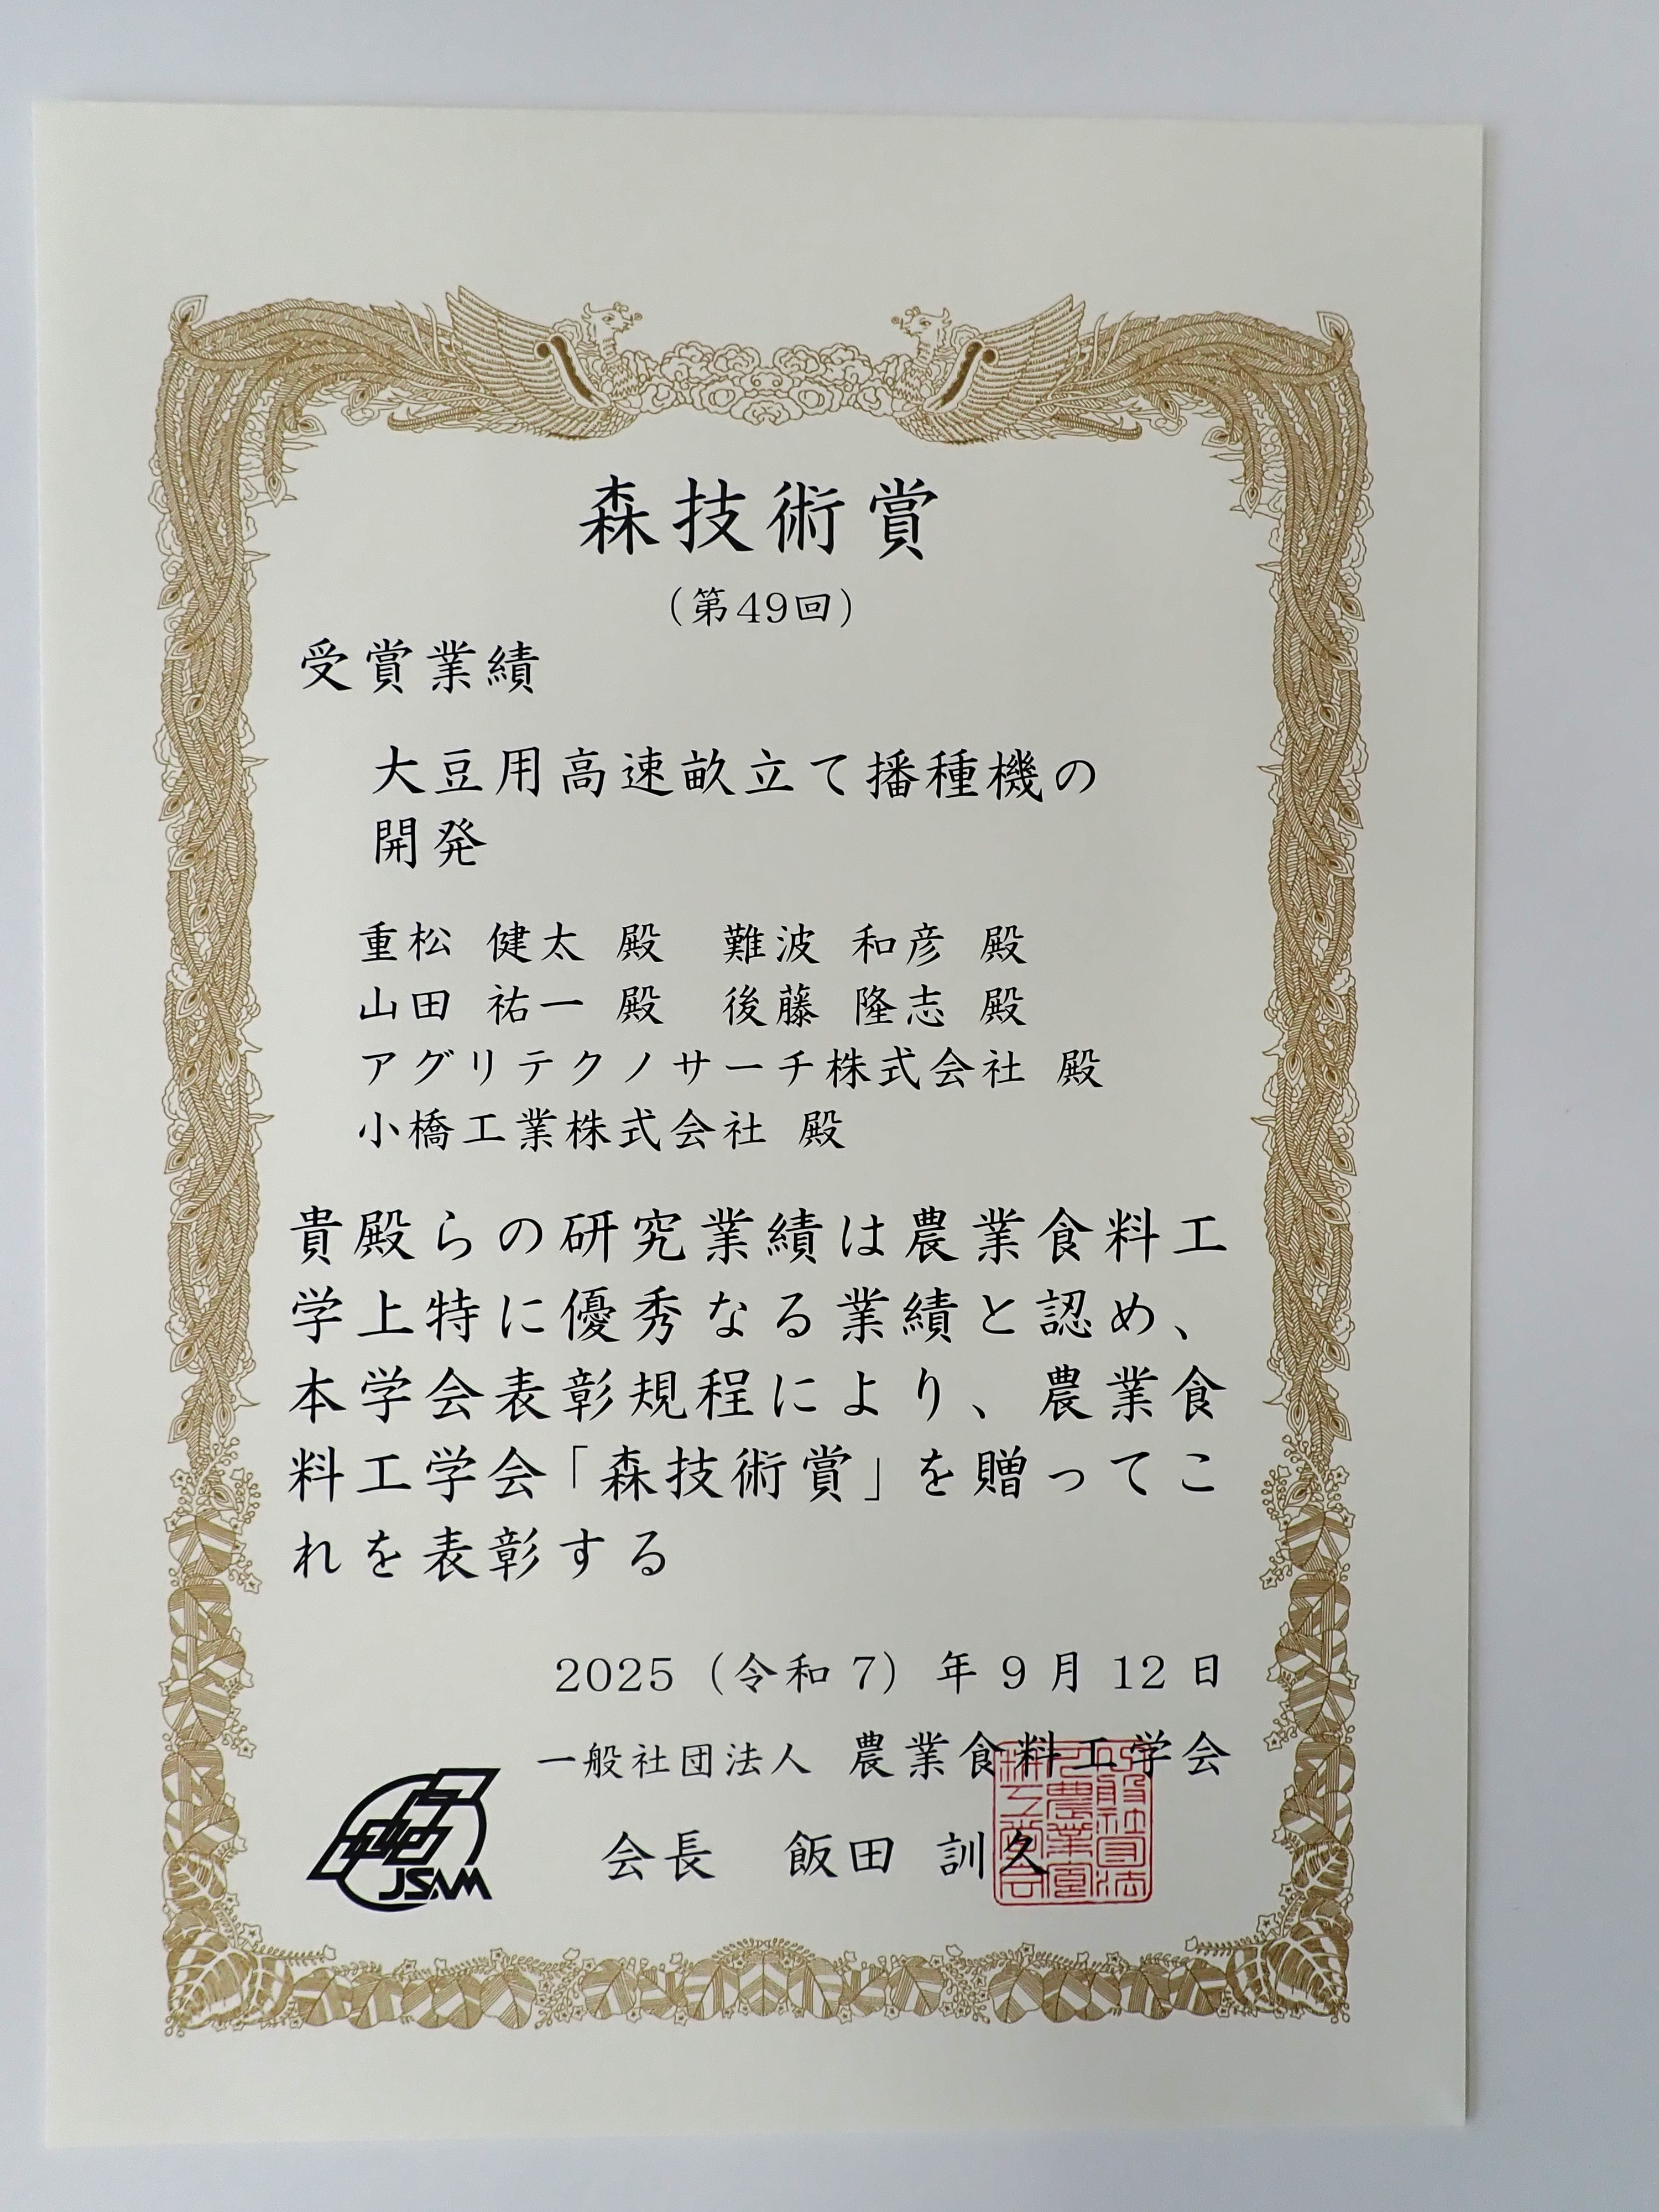 森技術賞
(第49回)
受賞業績
大豆用高速畝立て播種機の
開発
重松 健太 殿　難波 和彦 殿
山田 祐一 殿　後藤 隆志 殿
アグリテクノサーチ株式会社 殿
小橋工業株式会社 殿
貴殿らの研究業績は農業食料工
学上特に優秀なる業績と認め、
本学会表彰規程により、農業食
料工学会「森技術賞」を贈ってこ
れを表彰する
2025（令和7）年9月12日
一般社団法人 農業食料工学会
会長　飯田 訓久
JSAM